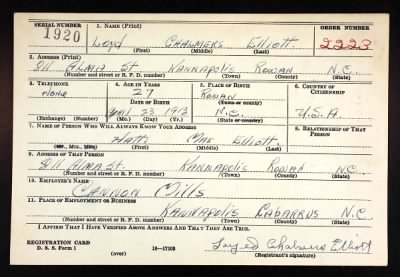 SERIAL NUMBER 1. NAME (Print) ORDER NUMBER
1920 Loyd Chalmers Elliott. 2223
(First) (Middle) (Last)
2. ADDRESS (Print)
811 Alma St Kannapolis Rowan N.C.
(Number and street or R. F. D. number) (Town) (County) (State)
3. TELEPHONE 4. AGE IN YEARS 5. PLACE OF BIRTH 6. COUNTRY OF CITIZENSHIP
None 27 Rowan
DATE OF BIRTH (Town or county)
April 23 1913 N.C. U.S.A
(Exchange) (No.) (Mo.) (Day) (Yr.) (State or country)
7. NAME OF PERSON WHO WILL ALWAYS KNOW YOUR ADDRESS 8. RELATIONSHIP OF THAT PERSON
Mae Elliott.
(Mr., Mrs., Miss) (First) (Middle) (Last)
9. ADDRESS OF THAT PERSON
811 Alma St. Kannapolis Rowan N.C.
(Number and street or R. F. D. number) (Town) (County) (State)
10. EMPLOYER'S NAME
Cannon Mills
11. PLACE OF EMPLOYMENT OR BUSINESS
Kannapolis Cabarrus N.C
(Number and street or R. F. D. number) (Town) (County) (State)
I AFFIRM THAT I HAVE VERIFIED ABOVE ANSWERS AND THAT THEY ARE TRUE.
REGISTRATION CARD
D. S. S. Form 1 16—17105 Loyd Chalmers Elliott
(over) (Registrant's signature)